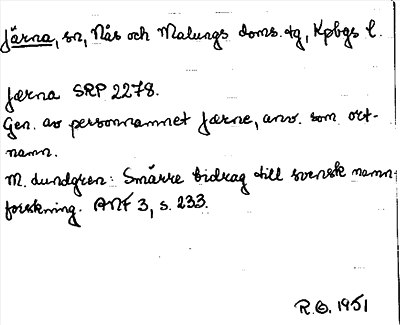 Järna, sn, Nås och Malungs doms.tg, Kpbgs l.
Jærna SRP 2278.
Gen. av personnamnet Jærne, anv. som ort-
namn.
M. Lundgren: Smärre bidrag till svensk namn-
forskning. ANF 3, s. 233.
R.O. 1951